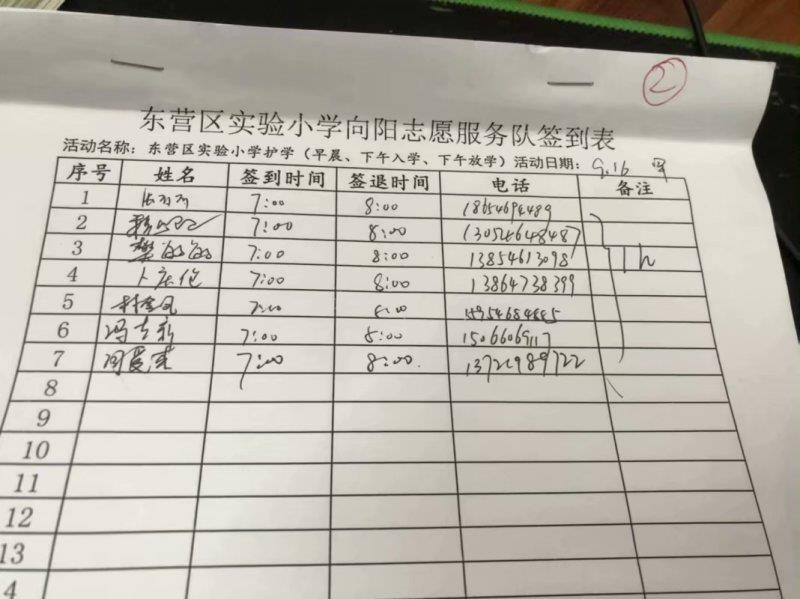 ②
东营区实验小学向阳志愿服务队签到表
活动名称：东营区实验小学护学（早晨、下午入学、下午放学）活动日期：9.16 早
序号 姓名 签到时间 签退时间 电话 备注
1 7:00 8:00 18654694489
2 7:00 8:00 13054648487
3 7:00 8:00 13854613098 1h
4 卜庆伦 7:00 8:00 13864738399
5 7:00 8:00
6 冯立新 7:00 8:00 15066069117
7 周爱莲 7:00 8:00
8
9
10
11
12
13
4